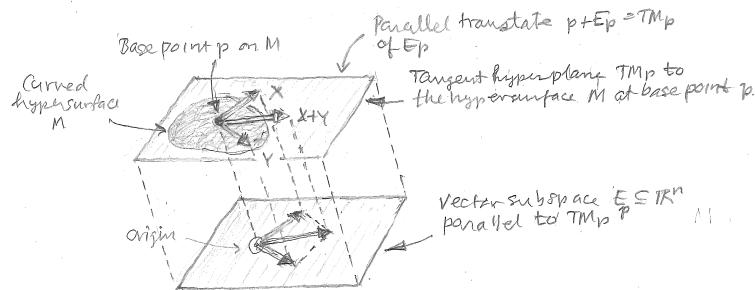 Parallel translate p+Ep = TMp
of Ep
Base point p on M
Curved
hypersurface
M
Tangent hyperplane TMp to
the hypersurface M at base point p.
X
X+Y
Y
Vector subspace Ep ⊆ ℝⁿ
parallel to TMp
Origin